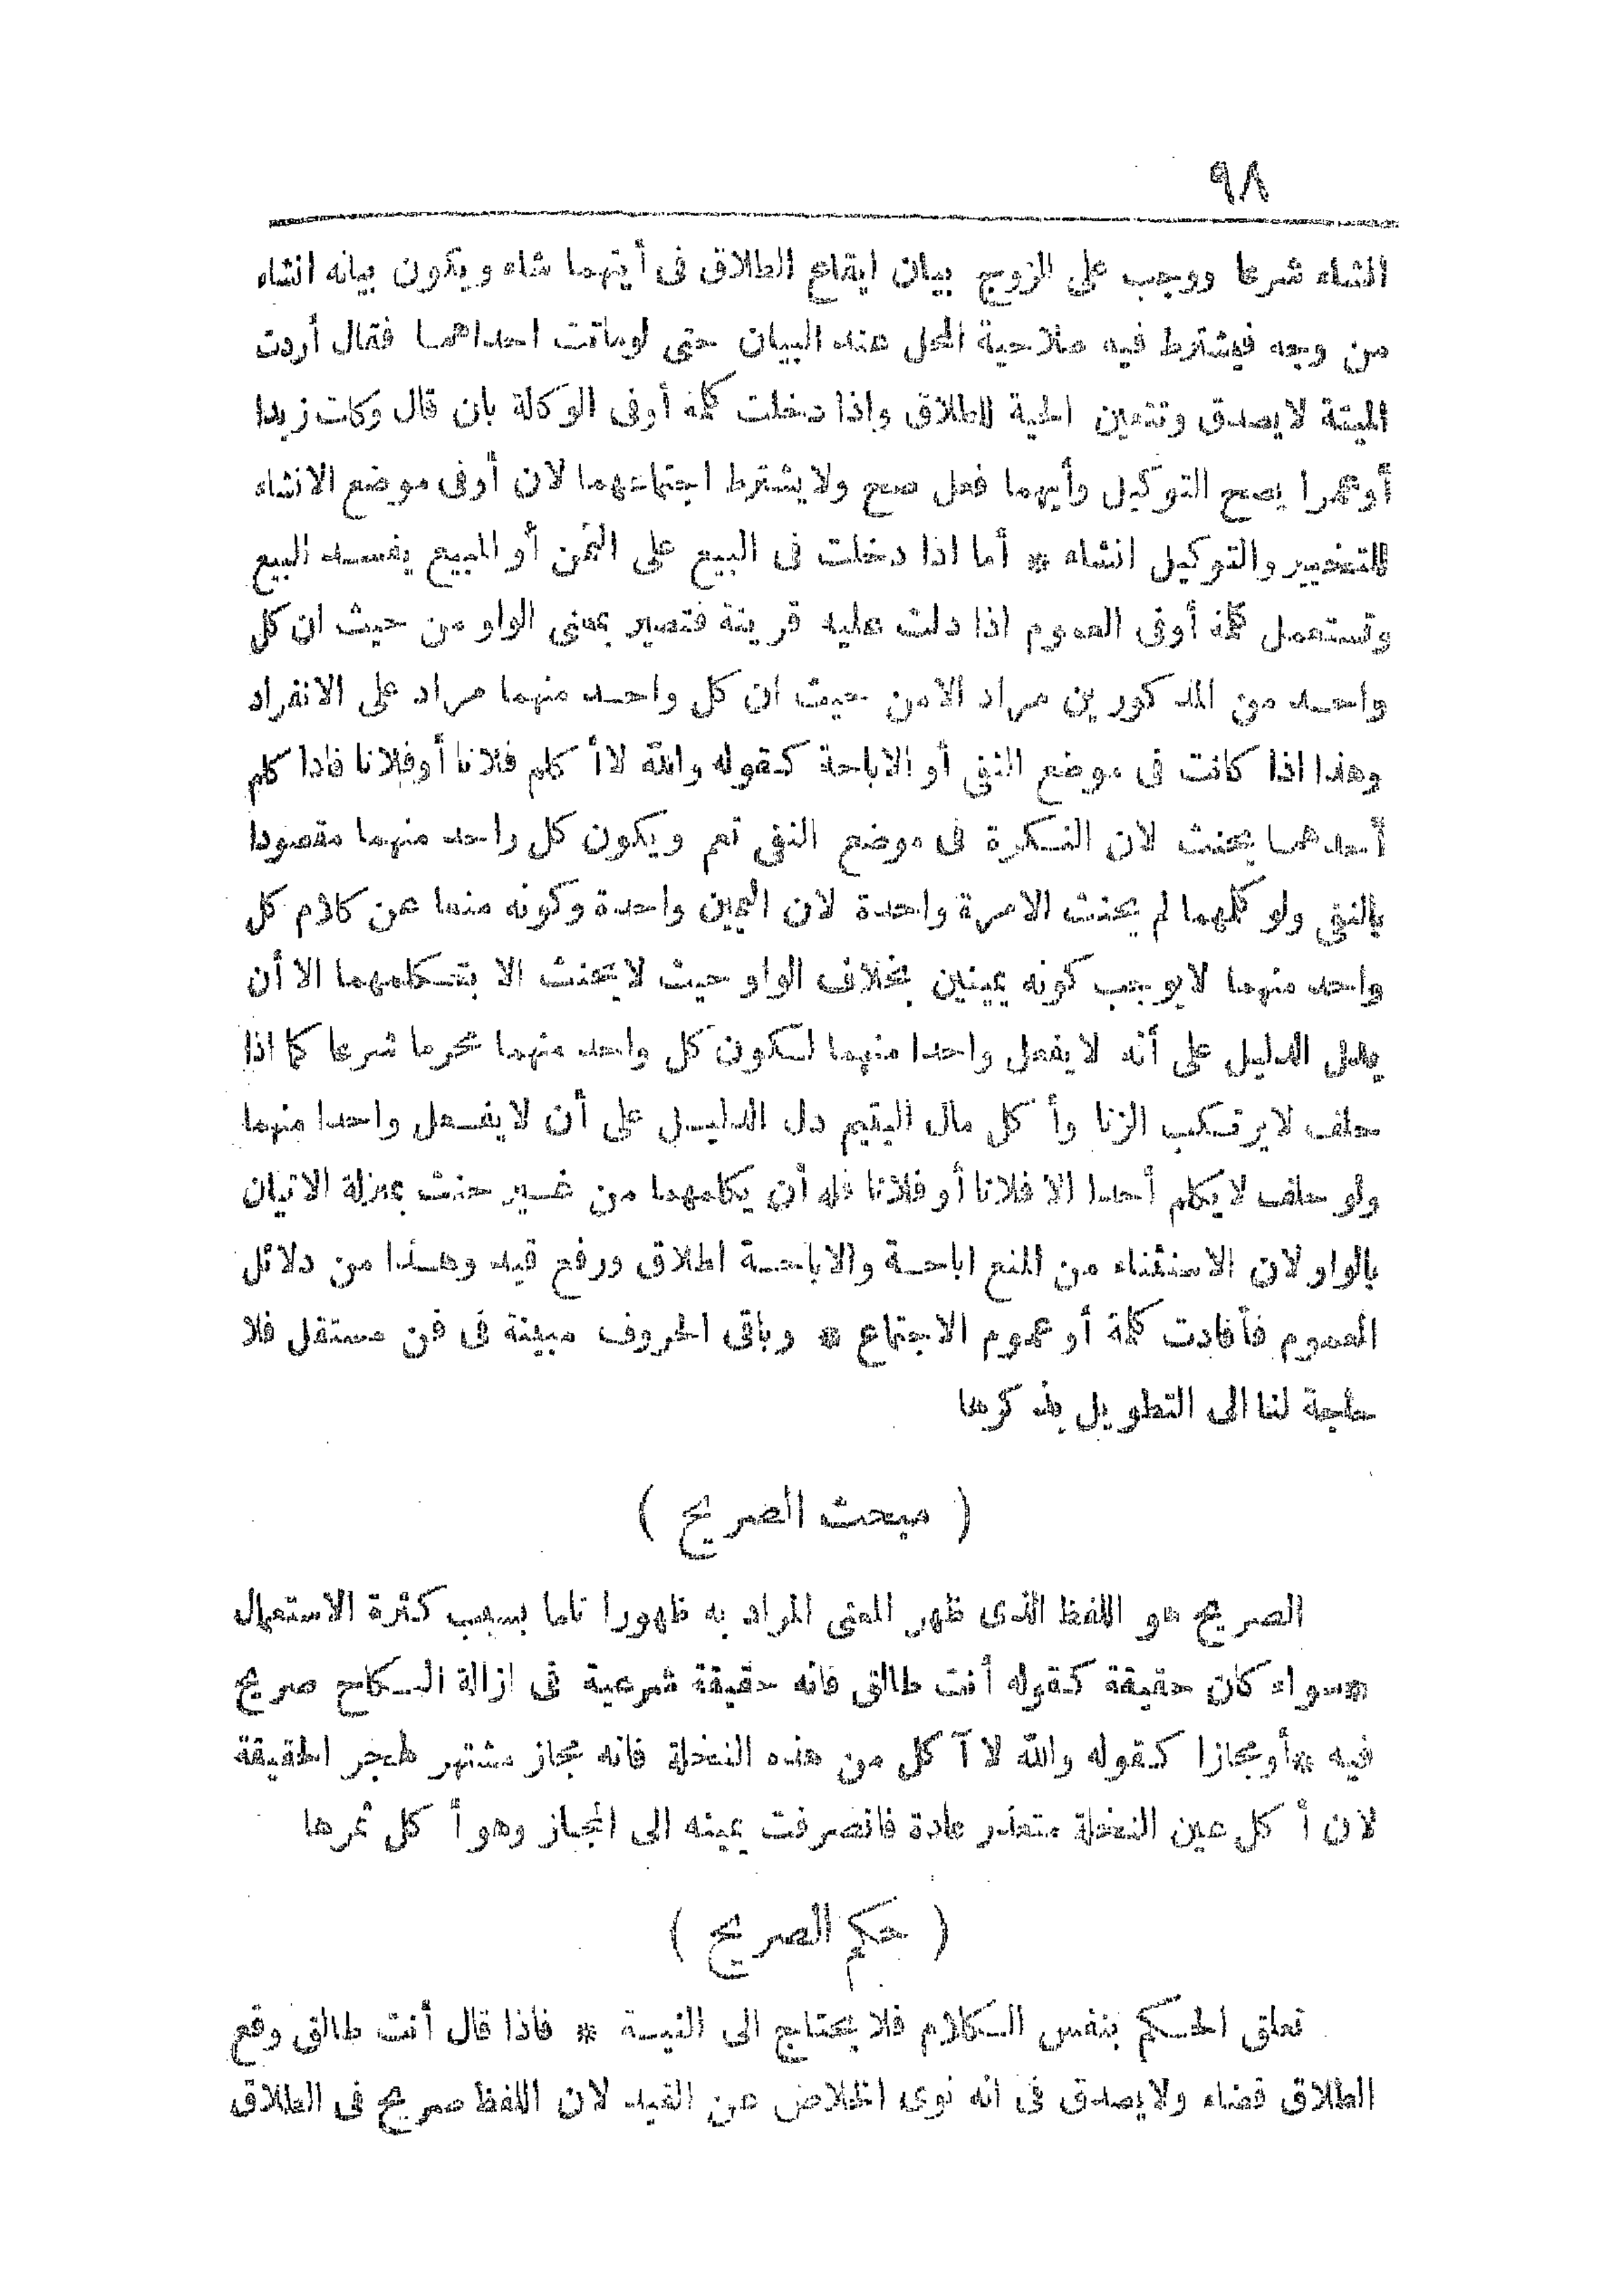 ٩٨
انشاء شرعا ووجب على الزوج بيان ايقاع الطلاق فى أيتهما شاء ويكون بيانه انشاء
من وجه فيشترط فيه صلاحية المحل عند البيان حتى لوماتت احداهما فقال أردت
الميتة لايصدق وتتعين الحية للطلاق واذا دخلت كلمة أوفى الوكالة بان قال وكلت زيدا
أوعمرا يصح التوكيل وأيهما فعل صح ولايشترط اجتماعهما لان أوفى موضع الانشاء
للتخيير والتوكيل انشاء * أما اذا دخلت فى البيع على الثمن أو المبيع يفسد البيع
وتستعمل كلمة أوفى العموم اذا دلت عليه قرينة فتصير بمعنى الواو من حيث ان كل
واحد من المذكورين مراد الامن حيث ان كل واحد منهما مراد على الانفراد
وهذا اذا كانت فى موضع النفى أو الاباحة كقوله والله لاأ كلم فلانا أوفلانا فاذا كلم
أحدهما يحنث لان النكرة فى موضع النفى تعم ويكون كل واحد منهما مقصودا
بالنفى ولو كلمهما لم يحنث الامرة واحدة لان اليمين واحدة وكونه منعا عن كلام كل
واحد منهما لايوجب كونه يمينين بخلاف الواو حيث لايحنث الا بتكلمهما الا أن
يدل الدليل على أنه لايفعل واحدا منهما لكون كل واحد منهما محرما شرعا كما اذا
حلف لايرتكب الزنا وأ كل مال اليتيم دل الدليل على أن لايفعل واحدا منهما
ولو حلف لايكلم أحدا الا فلانا أوفلانا فله أن يكلمهما من غير حنث بمنزلة الاتيان
بالواو لان الاستثناء من المنع اباحة والاباحة اطلاق ورفع قيد وهذا من دلائل
العموم فأفادت كلمة أو عموم الاجتماع * وباقى الحروف مبينة فى فن مستقل فلا
حاجة لنا الى التطويل بذكرها
( مبحث الصريح )
الصريح هو اللفظ الذى ظهر المعنى المراد به ظهورا تاما بسبب كثرة الاستعمال
*سواء كان حقيقة كقوله أنت طالق فانه حقيقة شرعية فى ازالة النكاح صريح
فيه *أومجازا كقوله والله لا آ كل من هذه النخلة فانه مجاز مشتهر لهجر الحقيقة
لان أ كل عين النخلة متعذر عادة فانصرفت يمينه الى المجاز وهو أ كل ثمرها
( حكم الصريح )
تعلق الحكم بنفس الكلام فلا يحتاج الى النية * فاذا قال أنت طالق وقع
الطلاق قضاء ولايصدق فى انه نوى الخلاص عن القيد لان اللفظ صريح فى الطلاق